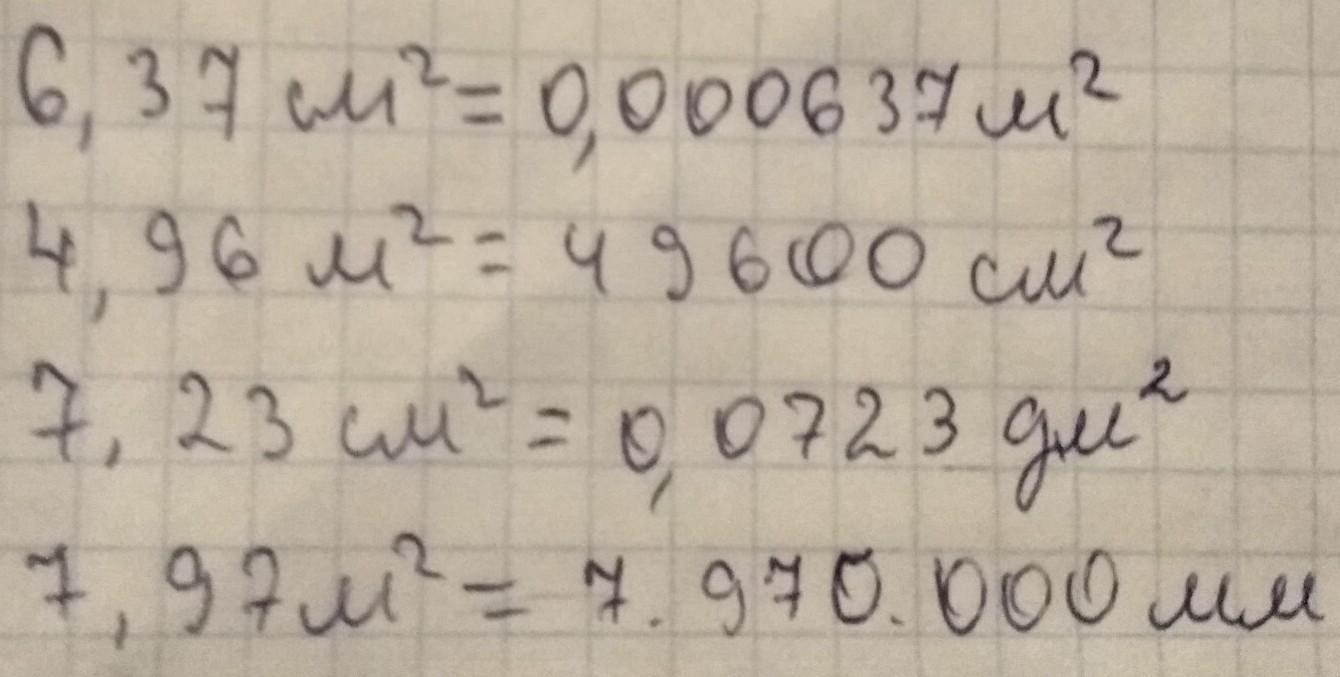 6,37 см²= 0,000637 м²
4,96 м²= 49600 см²
7,23 см²= 0,0723 дм²
7,97 м²= 7.970.000 мм